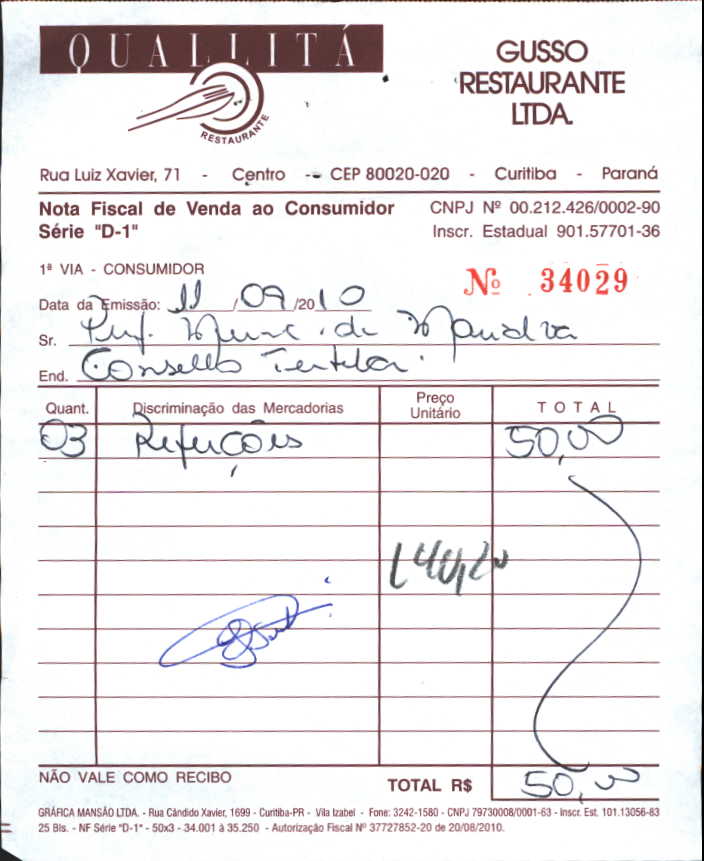 QUALLITÁ
RESTAURANTE
GUSSO
RESTAURANTE
LTDA.
Rua Luiz Xavier, 71 - Centro - CEP 80020-020 - Curitiba - Paraná
Nota Fiscal de Venda ao Consumidor
Série "D-1"
CNPJ Nº 00.212.426/0002-90
Inscr. Estadual 901.57701-36
1ª VIA - CONSUMIDOR
Nº 34029
Data da Emissão: 11/09/2010
Sr. Pref. Munc. de
End. Consello Tutelar
Quant. Discriminação das Mercadorias Preço Unitário TOTAL
03 Refeições 50,00
140,20
NÃO VALE COMO RECIBO
TOTAL R$ 50,00
GRÁFICA MANSÃO LTDA. - Rua Cândido Xavier, 1699 - Curitiba-PR - Vila Izabel - Fone: 3242-1580 - CNPJ 79730008/0001-63 - Inscr. Est. 101.13056-83
25 Bls. - NF Série "D-1" - 50x3 - 34.001 à 35.250 - Autorização Fiscal Nº 37727852-20 de 20/08/2010.